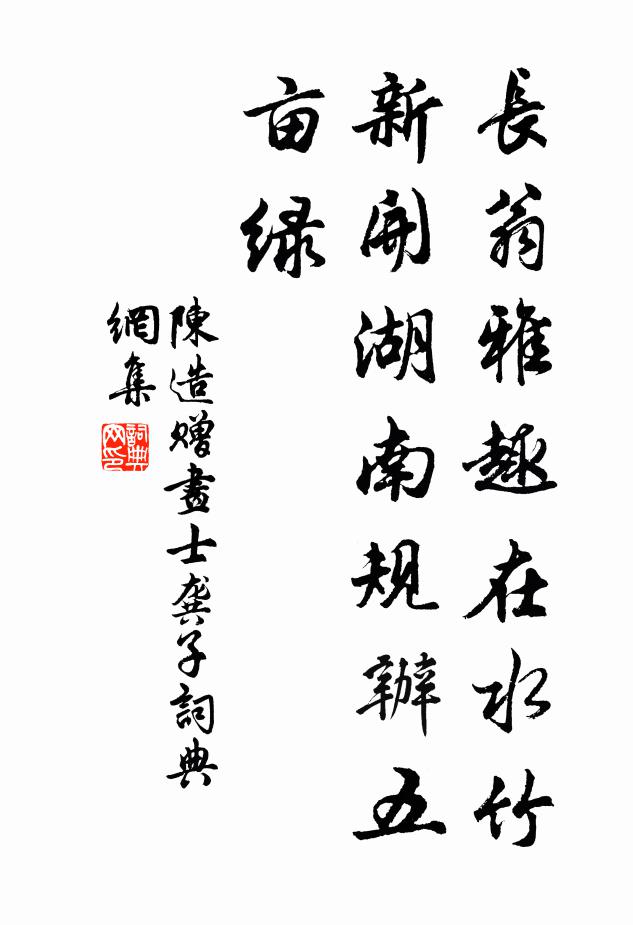 長翁雅趣在水竹
新開湖南規辦五
亩緑
陳造贈畫士龚子詞典
網集
詞典
网印